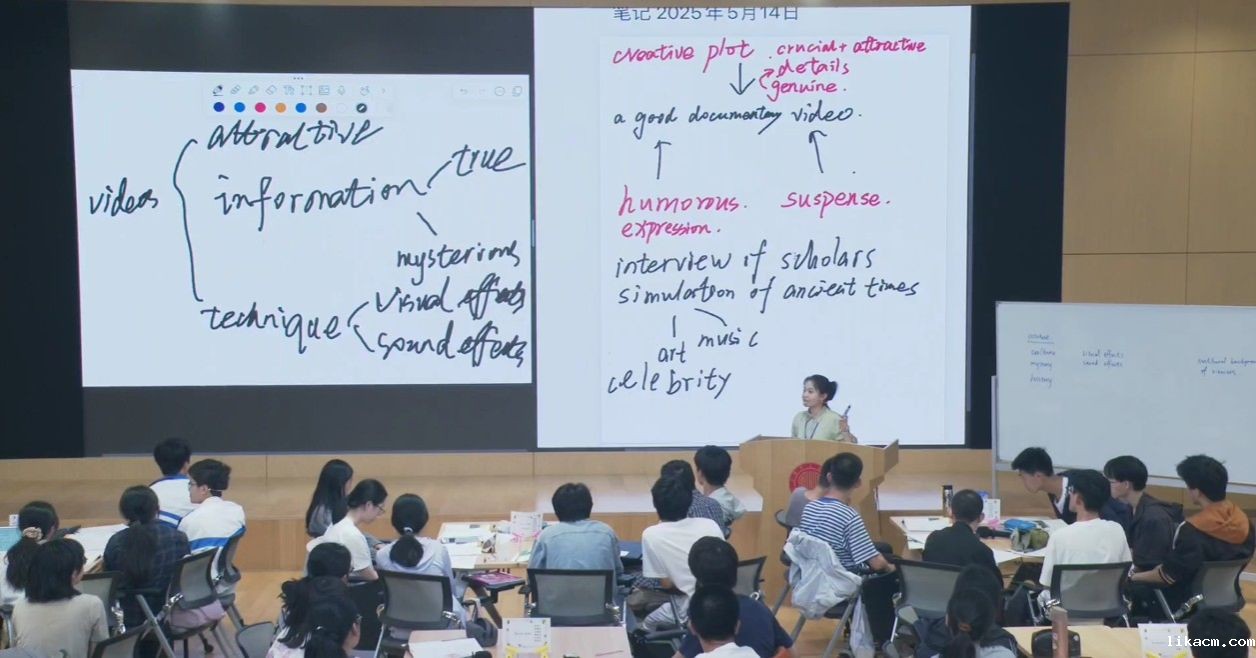 videos
attractive
information
true
mysterious
technique
visual effects
sound effects
笔记 2025年5月14日
creative plot
crucial + attractive
details
genuine.
a good documentary video.
humorous.
expression.
suspense.
interview of scholars
simulation of ancient times
art
music
celebrity
mystery
history
visual effects
sound effects
cultural background
of viewers
likacm.com